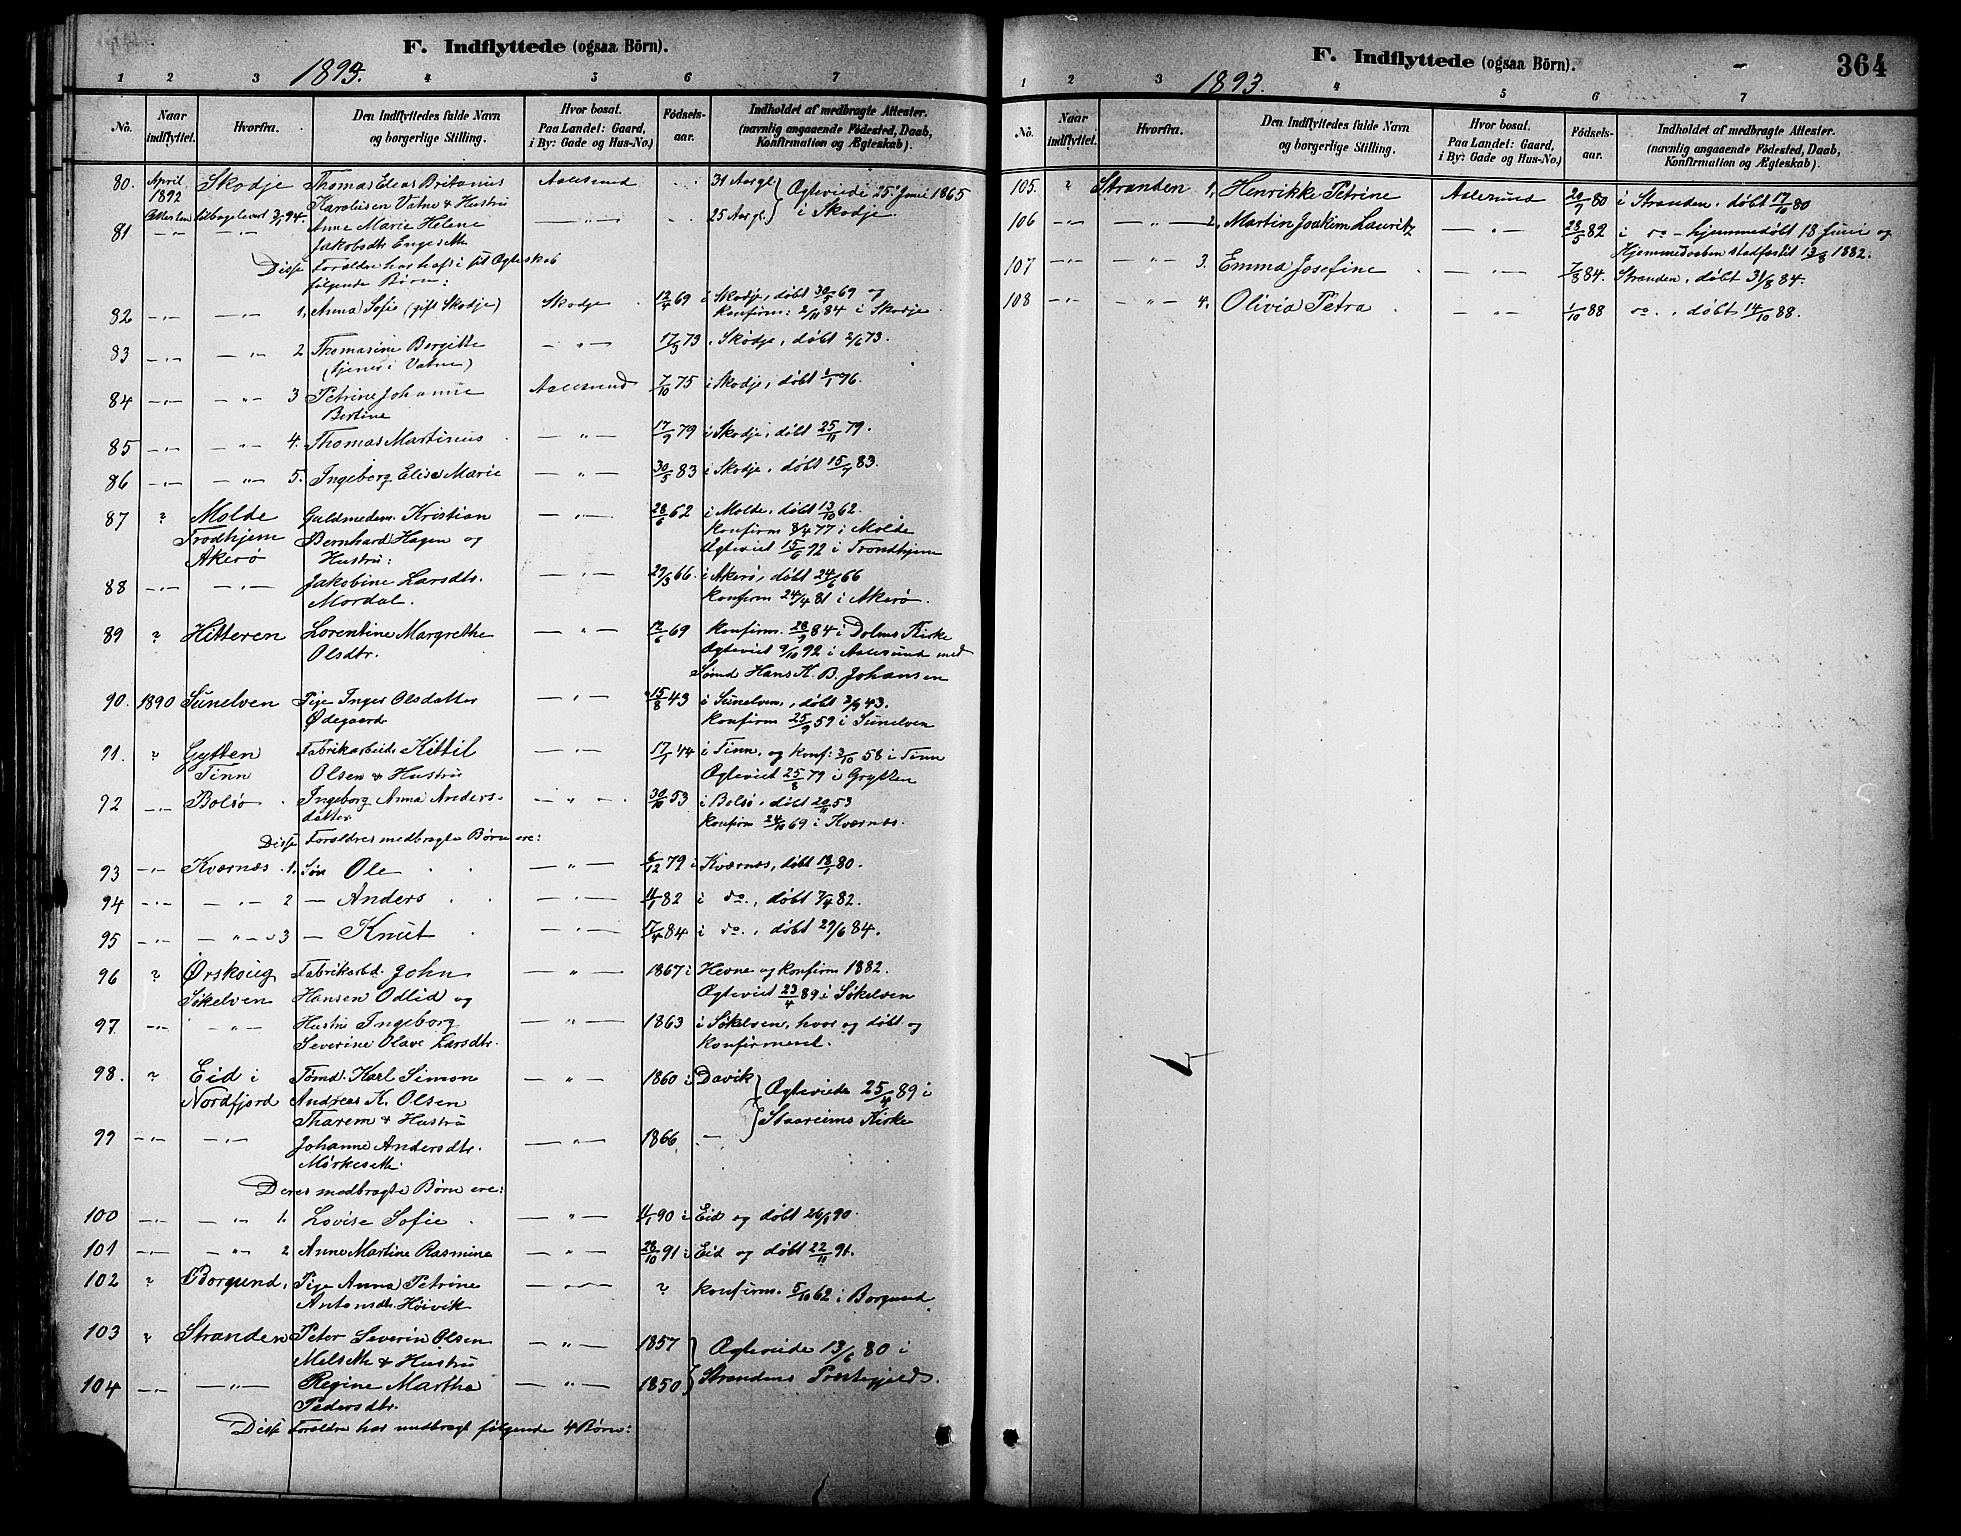 F. Indflyttede (ogsaa Börn).
1893.
1 2 3 4 5 6 7
No.
Naar indflyttet.
Hvorfra.
Den Indflyttedes fulde Navn og borgerlige Stilling.
Hvor bosat.
Paa Landet: Gaard, i By: Gade og Hus-No.)
Födsels-aar.
Indholdet af medbragte Attester.
(navnlig angaaende Födested, Daab, Konfirmation og Ægteskab).
80. April Skodje Thomas Elias Britanius Aalesund 31 Aar gl. Ægteviede 25. Juni 1865
1892 Karoliusen Vatne & Hustru i Skodje.
Attesten tilbageleveret 3/1 94.
81 -"- -"- Anne Marie Helene -"- 25 Aar gl.
Jakobsdtr. Engesæth
Disse Forældre har haft i sit Ægteskab
følgende Børn:
82 -"- -"- 1. Anna Sofie (gift Skodje) Skodje 12/4 69 i Skodje, døbt 30/5 69 og
konfirm: 2/11 84 i Skodje.
83 -"- -"- 2 Thomasine Bergitte -"- 17/3 73. Skodje, døbt 2/6 73.
(tjener i Vatne)
84 -"- -"- 3 Petrine Johanne Aalesund 7/10 75 i Skodje, døbt 1/1 76.
Bertine
85 -"- -"- 4. Thomas Martinus -"- 17/9 79 i Skodje, døbt 25/11 79.
86 -"- -"- 5. Ingeborg Elise Marie -"- 30/5 83 i Skodje, døbt 15/7 83.
87 ? Molde Guldmedsm. Kristian -"- 28/6 62 i Molde, døbt 13/10 62.
Trodhjem Bernhard Hagen og konfirm 8/4 77 i Molde
Akerø Hustru: Ægteviet 15/6 92 i Trondhjem
88 -"- -"- Jakobine Larsdtr. -"- 29/3 66. i Akerø, døbt 24/6 66
Mordal. konfirm 24/4 81 i Akerø.
89 ? Hitteren Lorentine Margrethe -"- 12/6 69 konfirm. 28/9 84 i Dolms Kirke
Olsdtr. Ægteviet 9/10 92 i Aalesund med
Sømd Hans K. B. Johansen
90. 1890 Sunelven Pige Inger Olsdatter -"- 15/8 43 i Sunelven, døbt 3/9 43.
Ødegaard konfirm 25/9 59 i Sunelven
91. ? Gytten Fabrikarbeid. Kittil -"- 17/1 44 i Tinn, og konf: 3/10 58 i Tinn
Tinn Olsen & Hustru Ægteviet 25/8 79 i Grytten
92 -"- Bolsø Ingeborg Anna Anders- -"- 30/10 53 i Bolsø, døbt 20/11 53
datter konfirm 24/10 69 i Kvernæs.
Disse Forældres medbragte Børn ere:
93 -"- Kvernæs 1. Søn Ole -"- 6/12 79 i Kvernæs, døbt 18/1 80.
94 -"- -"- 2 - Anders -"- 11/1 82 i do., døbt 7/4 82.
95 -"- -"- 3 - Knut -"- 17/4 84 i do., døbt 29/6 84.
96 ? Ørskoug Fabrikarbd. John -"- 1867 i Hevne og konfirm 1882.
Søkelven Hansen Odlid og Ægteviet 23/4 89 i Søkelven
97. -"- -"- Hustru Ingeborg -"- 1863 i Søkelven, hvor og døbt og
Severine Olave Larsdtr. konfirmeret.
98. ? Eid i Tømd. Karl Simon -"- 1860 i Davik Ægteviede 25/4 89 i
Nordfjord Andreas K. Olsen Staareims Kirke
Tharem & Hustru
99 -"- -"- Johanne Andersdtr. -"- 1866 -"-
Mørkeseth.
Deres medbragte Børn ere:
100 -"- -"- 1. Lovise Sofie -"- 11/1 90 i Eid og døbt 26/1 90.
101 -"- -"- 2 Anne Martine Rasmine -"- 28/10 91 i Eid og døbt 22/11 91.
102 ? Borgund. Pige Anna Petrine -"- ? konfirm. 5/10 62 i Borgund.
Antonsdtr. Høivik
103 ? Stranden Peter Severin Olsen -"- 1857 Ægteviede 13/6 80 i
Melseth & Hustru Strandens Præstegjeld.
104 -"- -"- Regine Marthe -"- 1850
Pedersdtr.
Disse Forældre har medbragt følgende 4 Børn:
F. Indflyttede (ogsaa Börn).
364
1893.
1 2 3 4 5 6 7
No.
Naar indflyttet.
Hvorfra.
Den Indflyttedes fulde Navn og borgerlige Stilling.
Hvor bosat.
Paa Landet: Gaard, i By: Gade og Hus-No.)
Födsels-aar.
Indholdet af medbragte Attester.
(navnlig angaaende Födested, Daab, Konfirmation og Ægteskab).
105. ? Stranden 1. Henrikke Petrine Aalesund 20/9 80 i Stranden, døbt 17/10 80
106 -"- -"- 2. Martin Joakim Lauritz -"- 23/5 82 i do - hjemmedøbt 18 Juni og
Hjemmedaaben stadfæstet 13/8 1882.
107 -"- -"- 3. Emma Josefine -"- 7/8 84. Stranden, døbt 31/8 84.
108 -"- -"- 4. Olivia Petra -"- 1/10 88 do., døbt 14/10 88.